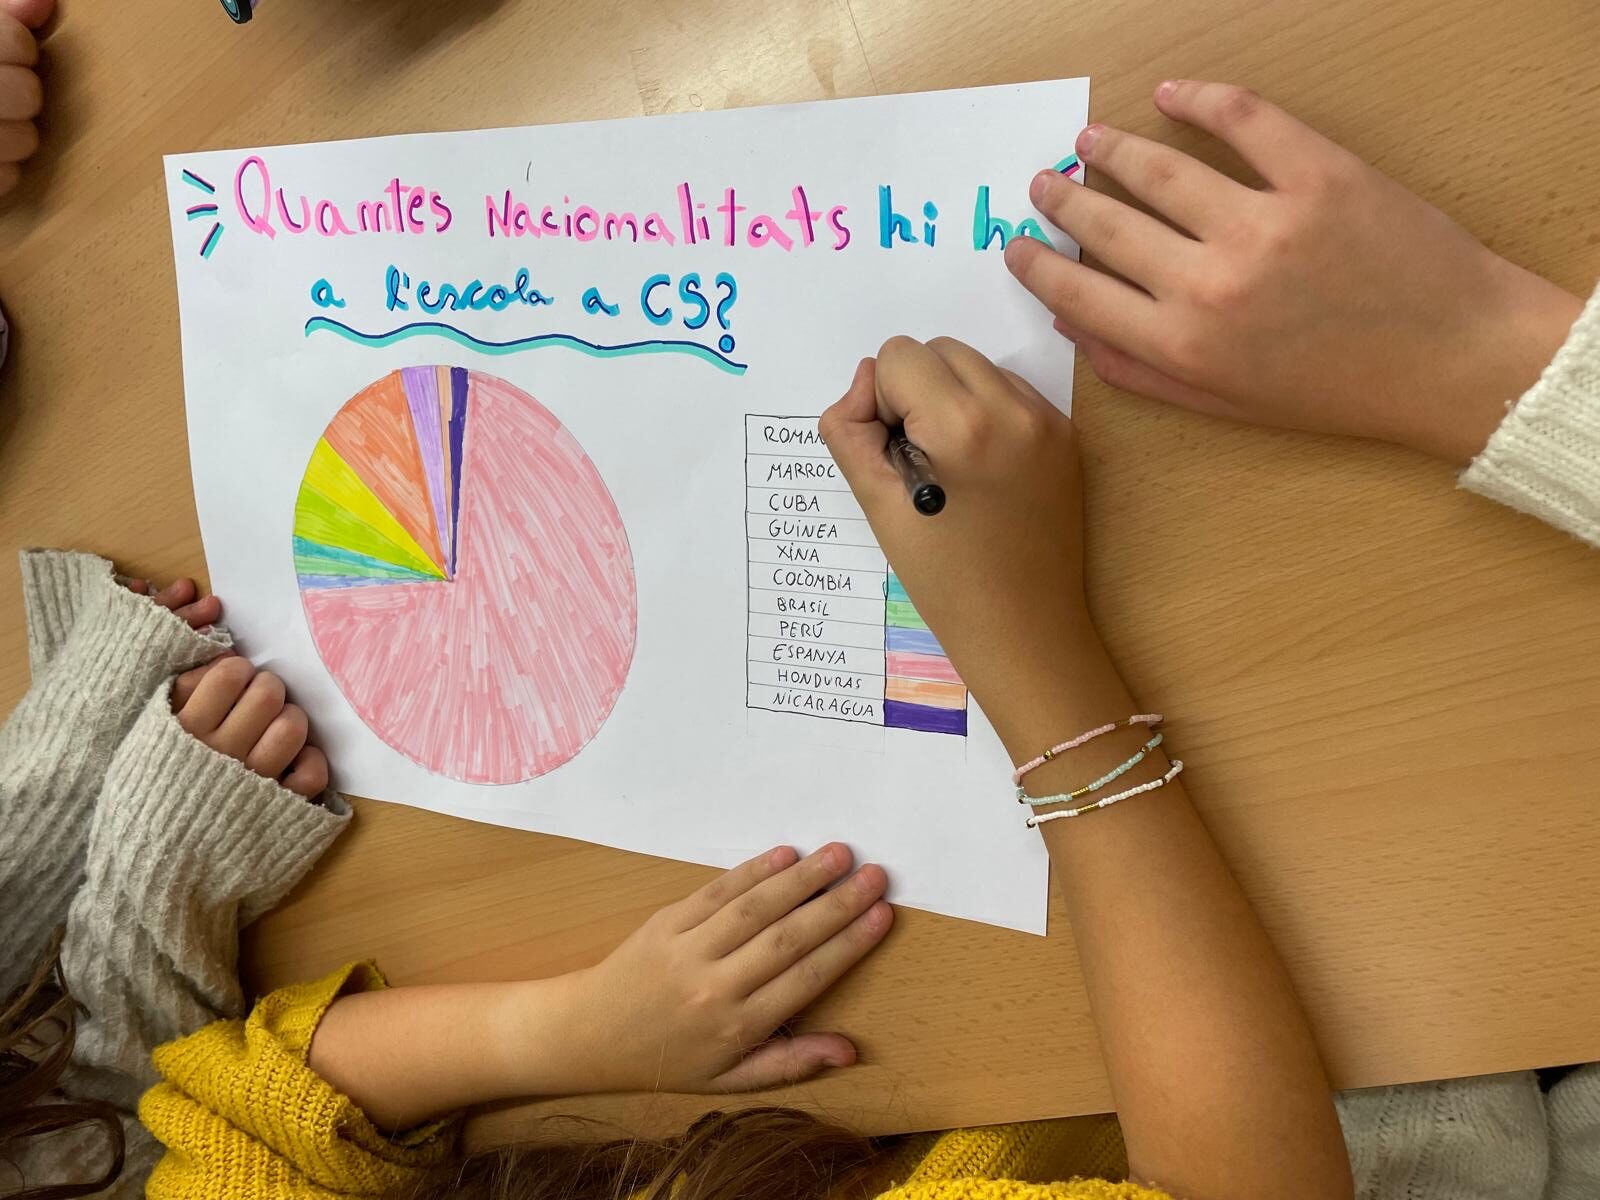 Quantes Nacionalitats hi ha
a l'escola a CS?
MARROC
CUBA
GUINEA
XINA
COLÒMBIA
BRASIL
PERÚ
ESPANYA
HONDURAS
NICARAGUA